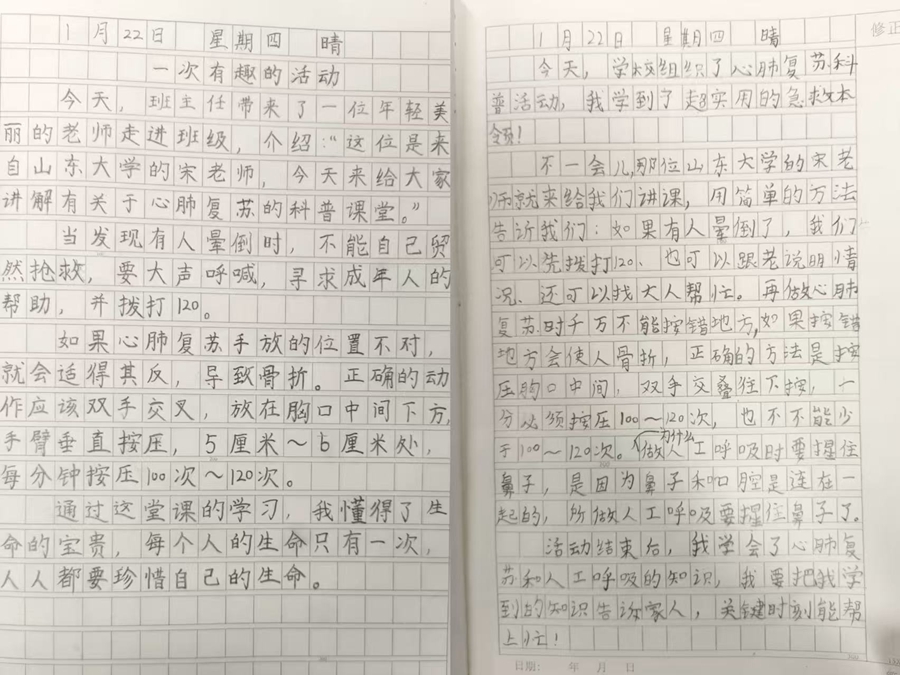 1月22日 星期四 晴
一次有趣的活动
今天，班主任带来了一位年轻美
丽的老师走进班级，介绍：“这位是来
自山东大学的宋老师，今天来给大家
讲解有关于心肺复苏的科普课堂。”
当发现有人晕倒时，不能自己贸
然抢救，要大声呼喊，寻求成年人的
帮助，并拨打120。
如果心肺复苏手放的位置不对，
就会适得其反，导致骨折。正确的动
作应该双手交叉，放在胸口中间下方，
手臂垂直按压，5厘米～6厘米处，
每分钟按压100次～120次。
通过这堂课的学习，我懂得了生
命的宝贵，每个人的生命只有一次，
人人都要珍惜自己的生命。
1月22日 星期四 晴
修正
今天，学校组织了心肺复苏科
普活动，我学到了超实用的急救本
领！
不一会儿，那位山东大学的宋老
师就来给我们讲课，用简单的方法
告诉我们：如果有人晕倒了，我们
可以先拨打120、也可以跟老说明情
况、还可以找大人帮忙。再做心肺
复苏时千万不能按错地方，如果按错
地方会使人骨折，正确的方法是按
压胸口中间，双手交叠往下按，一
分必须按压100～120次，也不不能少
于100～120次。为什么做人工呼吸时要捏住
鼻子，是因为鼻子和口腔是连在一
起的，所做人工呼吸要捏住鼻子了。
活动结束后，我学会了心肺复
苏和人工呼吸的知识，我要把我学
到的知识告诉家人，关键时刻能帮
上忙！
日期： 年 月 日